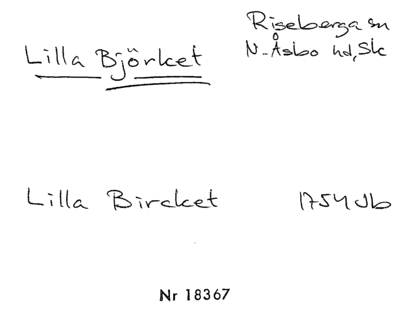 Riseberga sn
Lilla Björket N. Åsbo hd, Sk
Lilla Bircket 1754 Jb
Nr 18367